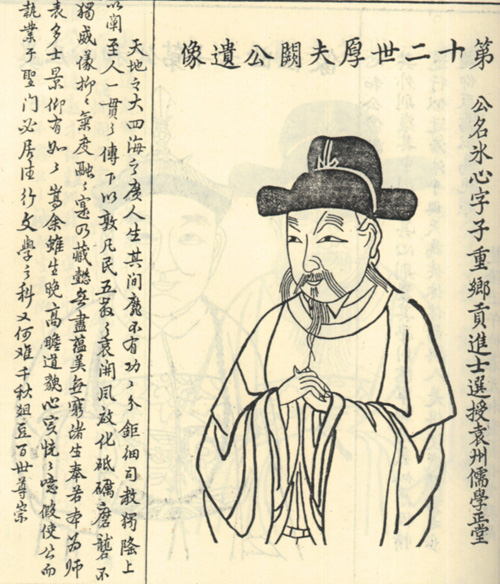 第十二世厚夫闕公遺像
公名氷心字子重鄉貢進士選授袁州儒學正堂
天地之大四海之廣人生其間靡不有功之分鉅細司教獨隆上
以闡至人一貫之傳下以敦凡民五教之衷開風啟化砥礪磨礱不
獨威儀抑抑氣度融融寔乃藏懿無盡蘊美無窮諸生奉若為師
表多士景仰有如嵩余雖生晚高瞻道貌心恍噫使公而
執業于聖門必居德行文學之科又何难千秋俎豆百世尊宗